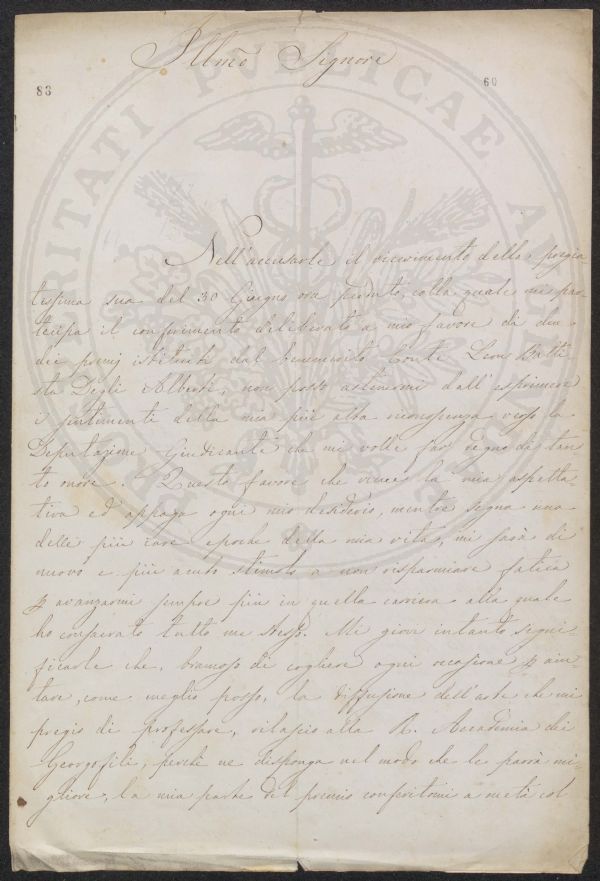 Illmo Signore
83
60
Nell'accusarle il ricevimento della pregia
tissima sua del 30 Giugno ora perduto, colla quale mi par-
tecipa il conferimento deliberato a mio favore di due
dei premj istituiti dal benemerito Conte Leon Batti-
sta Degli Alberti, non posso astenermi dall'esprimere
i sentimenti della mia più alta riconoscenza verso la
Deputazione Giudicante che mi volle far degno di tan-
to onore. Questo favore che vince la mia aspetta
tiva ed appaga ogni mio desiderio, mentre segna una
delle più care epoche della mia vita, mi sarà di
nuovo e più acuto stimolo a non risparmiare fatica
p avanzarmi sempre più in quella carriera alla quale
ho consacrato tutto me stesso. Mi giova intanto signi
ficarle che, bramoso di cogliere ogni occasione p aiu-
tare, come meglio posso, la diffusione dell'arte che mi
pregio di professare, rilascio alla R. Accademia dei
Georgofili, perchè ne disponga nel modo che le parrà mi-
gliore, la mia parte del premio conferitomi a metà col
PROSPERITATI PUBLICAE AUGENDAE